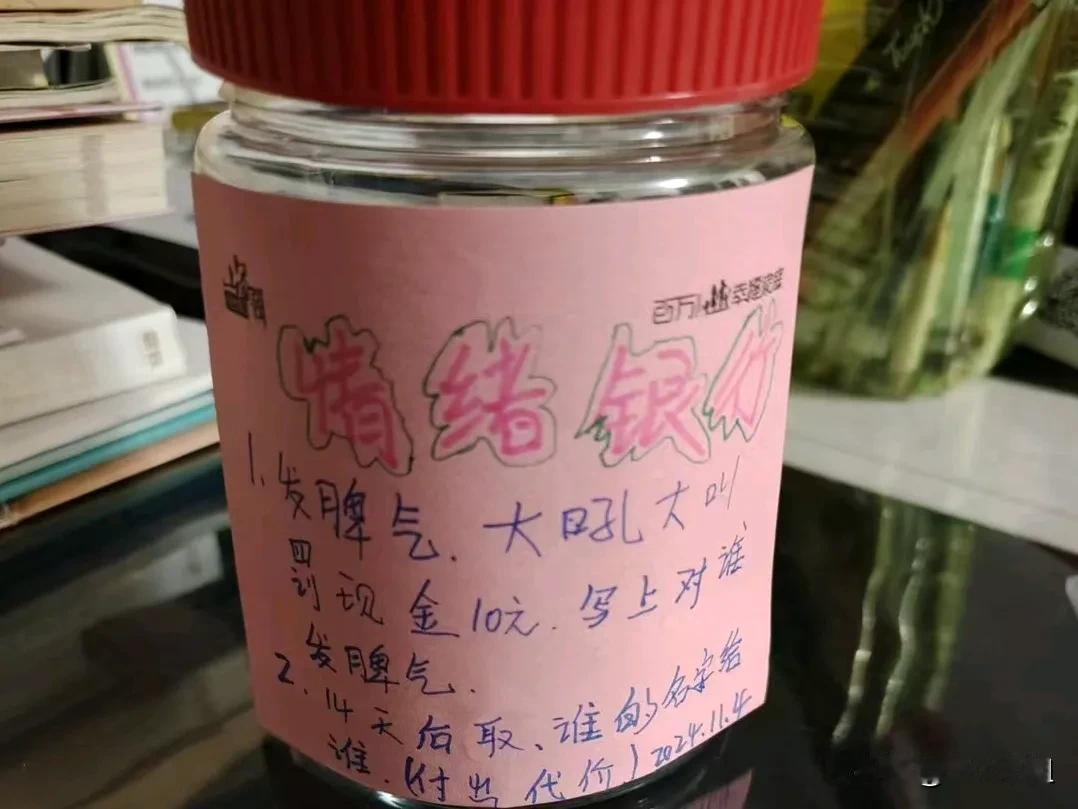 百万 幸福家庭
情绪银行
1.发脾气.大吼大叫
罚现金10元.写上对谁
发脾气.
2.14天后取、谁的名字给
谁.(付出代价) 2024.11.4